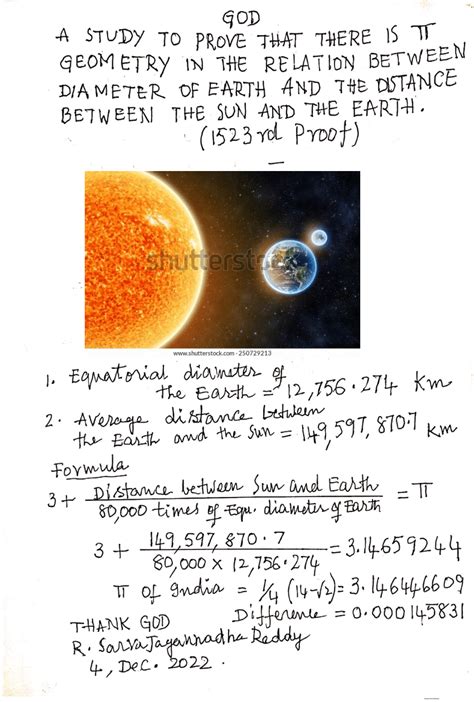 GOD
A STUDY TO PROVE THAT THERE IS π
GEOMETRY IN THE RELATION BETWEEN
DIAMETER OF EARTH AND THE DISTANCE
BETWEEN THE SUN AND THE EARTH.
(1523rd Proof)
shutterstock
www.shutterstock.com · 250729213
1. Equatorial diameter of
the Earth = 12,756.274 Km
2. Average distance between
the Earth and the Sun = 149,597,870.7 Km
Formula
3 + Distance between Sun and Earth = π
80,000 times of Equ. diameter of Earth
3 + 149,597,870.7 = 3.14659244
80,000 × 12,756.274
π of India = 1/4 (14-√2) = 3.146446609
Difference = 0.000145831
THANK GOD
R. Sarva Jagannadha Reddy
4, Dec. 2022.